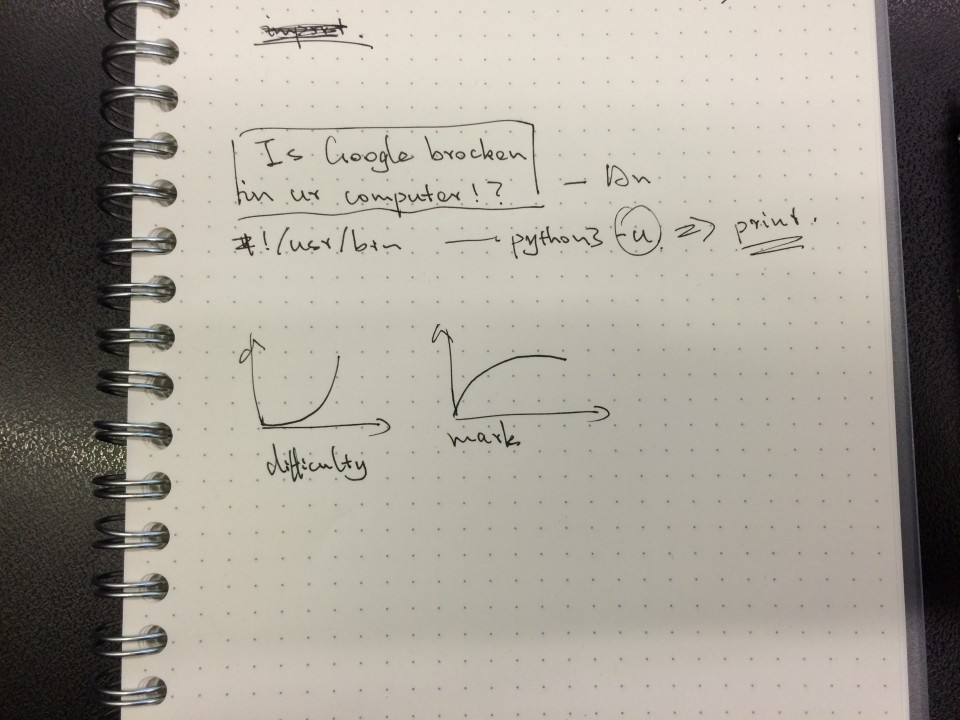 Is Google brocken
in ur computer!? — An
#!/usr/bin — python3 -u => print.
difficulty
mark